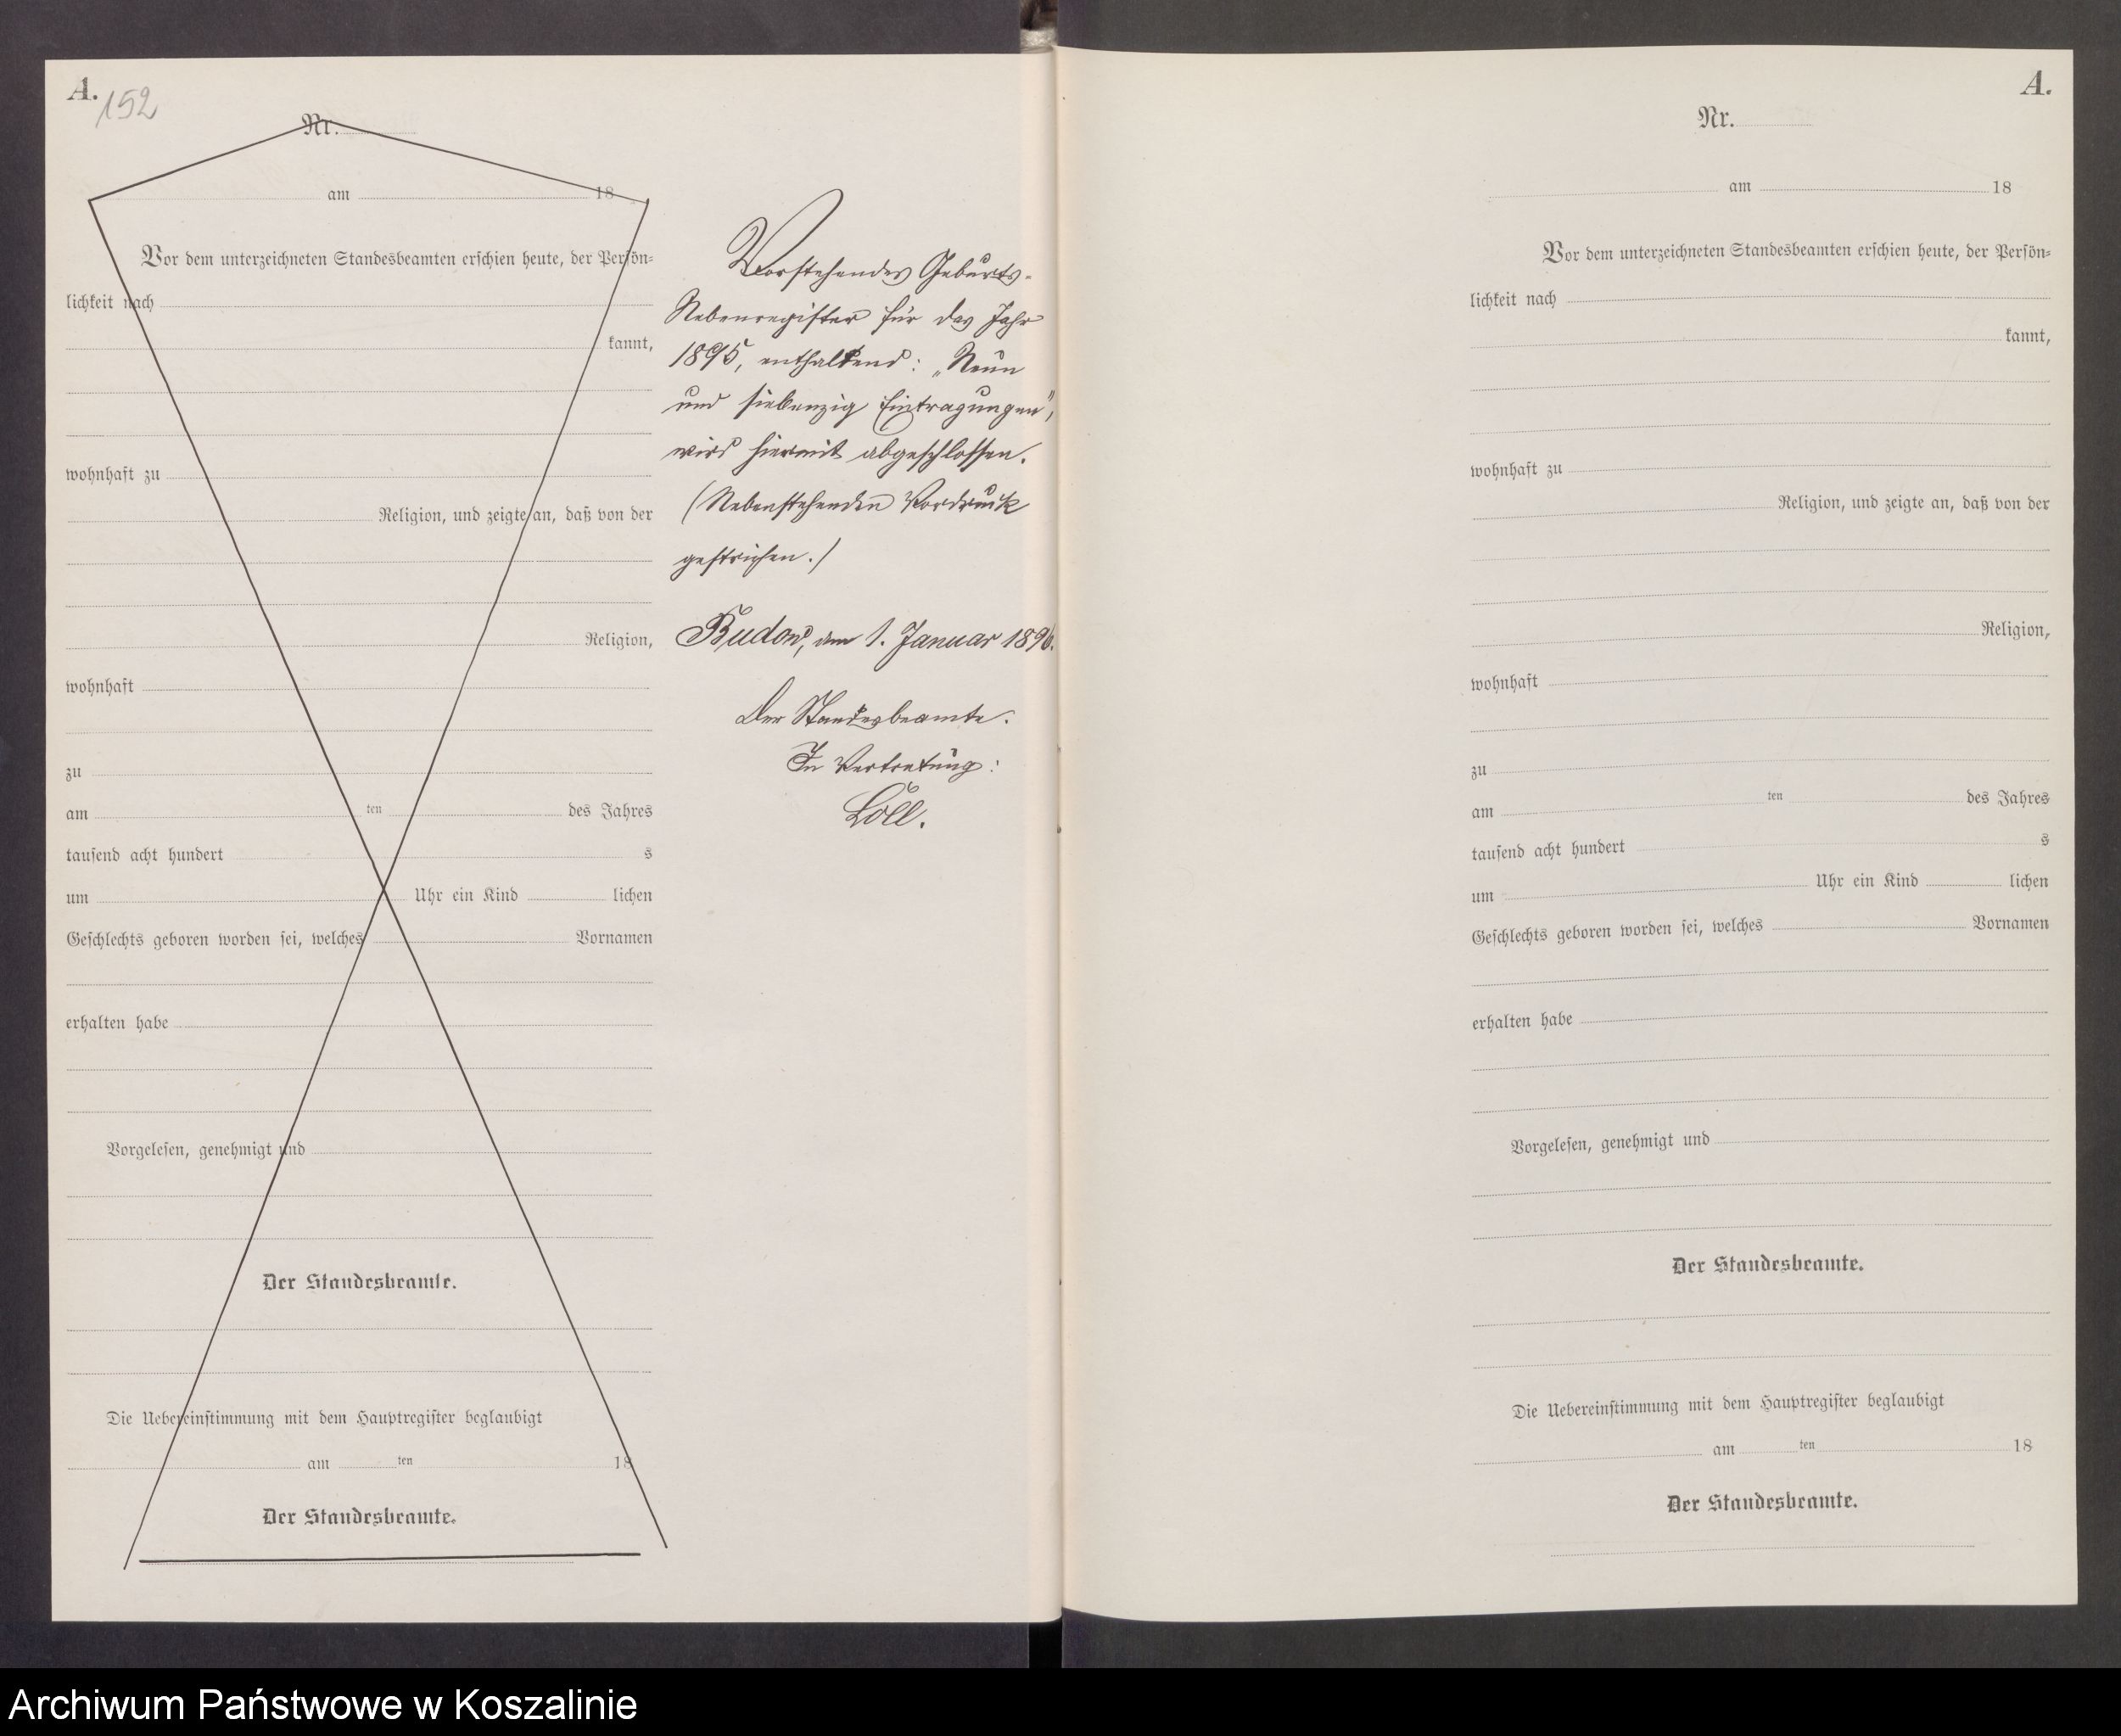 A.
152
Nr.
am 18
Vor dem unterzeichneten Standesbeamten erschien heute, der Persön-
lichkeit nach
kannt,
wohnhaft zu
Religion, und zeigte an, daß von der
Religion,
wohnhaft
zu
am ten des Jahres
tausend acht hundert s
um Uhr ein Kind lichen
Geschlechts geboren worden sei, welches Vornamen
erhalten habe
Vorgelesen, genehmigt und
Der Standesbeamte.
Die Uebereinstimmung mit dem Hauptregister beglaubigt
am ten 18
Der Standesbeamte.
Vorstehendes Geburts-
Nebenregister für das Jahr
1895, enthaltend: „Neun
und siebenzig Eintragungen",
wird hiermit abgeschlossen.
(Nebenstehenden Vordruck
gestrichen.)
Budow, am 1. Januar 1896.
Der Standesbeamte.
In Vertretung:
Löll.
A.
Nr.
am 18
Vor dem unterzeichneten Standesbeamten erschien heute, der Persön-
lichkeit nach
kannt,
wohnhaft zu
Religion, und zeigte an, daß von der
Religion,
wohnhaft
zu
am ten des Jahres
tausend acht hundert s
um Uhr ein Kind lichen
Geschlechts geboren worden sei, welches Vornamen
erhalten habe
Vorgelesen, genehmigt und
Der Standesbeamte.
Die Uebereinstimmung mit dem Hauptregister beglaubigt
am ten 18
Der Standesbeamte.
Archiwum Państwowe w Koszalinie